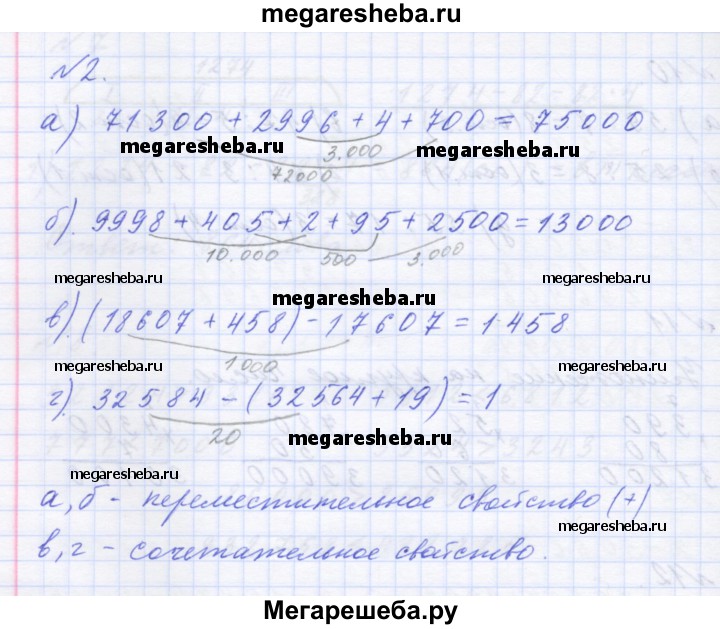 megaresheba.ru
№2.
а) 71300 + 2996 + 4 + 700 = 75000
megaresheba.ru megaresheba.ru
3.000
72000
б). 9998 + 405 + 2 + 95 + 2500 = 13000
10.000 500 3.000
megaresheba.ru megaresheba.ru
megaresheba.ru
в). (18607 + 458) - 17607 = 1458
1000
megaresheba.ru megaresheba.ru
г). 32584 - (32564 + 19) = 1
20
megaresheba.ru
megaresheba.ru
а, б - переместительное свойство (+)
megaresheba.ru
в, г - сочетательное свойство.
Мегарешеба.ру